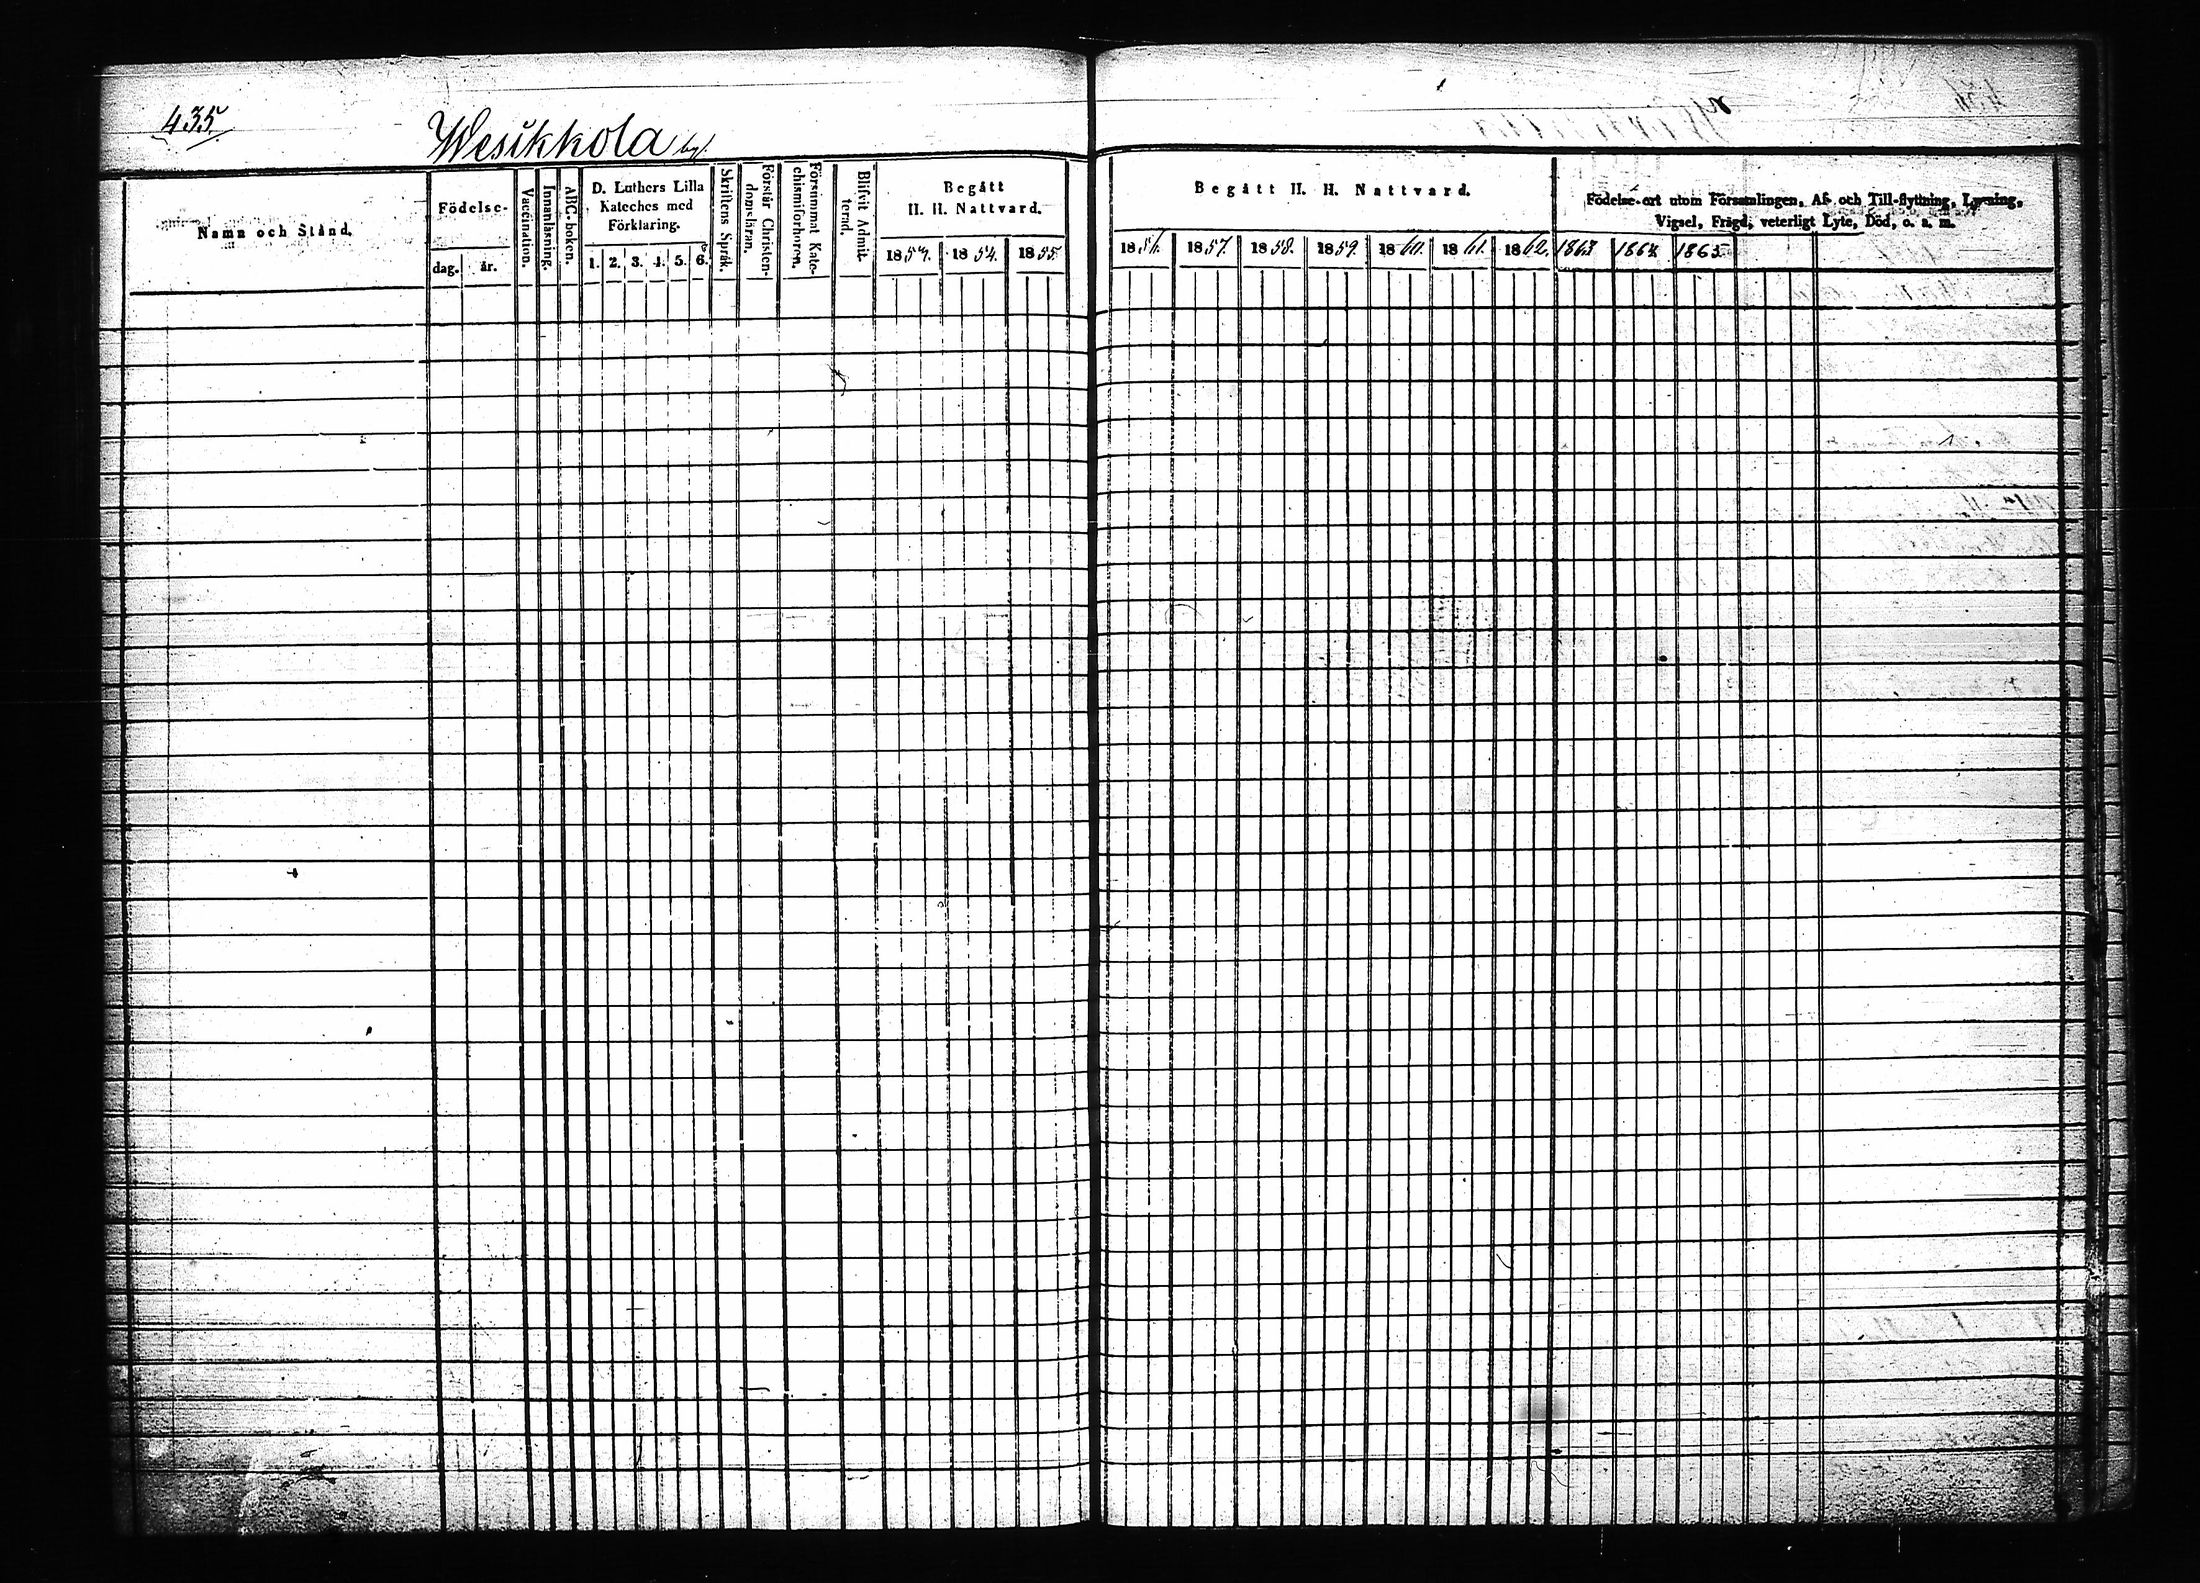 435
Wesikkola by.
Namn och Stånd.
Födelse-
dag. år.
Vaccination.
Innanläsning.
ABC-boken.
D. Luthers Lilla
Kateches med
Förklaring.
1. 2. 3. 4. 5. 6.
Skriftens Språk.
Förstår Christen-
domsläran.
Försummat Kate-
chismiförhören.
Blifvit Admit-
terad.
Begått
H. H. Nattvard.
1853. 1854. 1855.
Begått H. H. Nattvard.
1856. 1857. 1858. 1859. 1860. 1861. 1862. 1863 1864 1865
Födelse-ort utom Församlingen, Af- och Till-flyttning, Lysning,
Vigsel, Frägd, veterligt Lyte, Död, o. s. m.